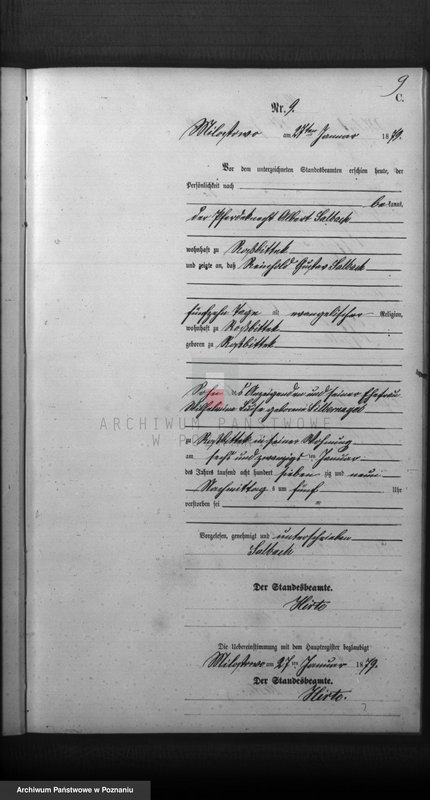 9
C.
Nr. 9.
Milostowo am 27ten Januar 1879.
Vor dem unterzeichneten Standesbeamten erschien heute, der
Persönlichkeit nach
be kannt,
der Pferdeknecht Albert Salbach
wohnhaft zu
und zeigte an, daß Reinhold Gustav Salbach
fünfzehn Tage alt evangelischer Religion,
wohnhaft zu
geboren zu
Sohn des Anzeigenden und seiner Ehefrau
Wilhelmine geborene Silbernagel
zu in seiner Wohnung
am sechs und zwanzigsten Januar
des Jahres tausend acht hundert sieben zig und neun
Nachmittag s um fünf Uhr
verstorben sei
Vorgelesen, genehmigt und unterschrieben
Salbach
Der Standesbeamte.
Hirte
Die Uebereinstimmung mit dem Hauptregister beglaubigt
Milostowo am 27 ten Januar 1879.
Der Standesbeamte.
Hirte.
ARCHIWUM PAŃSTWOWE
W POZNANIU
Archiwum Państwowe w Poznaniu